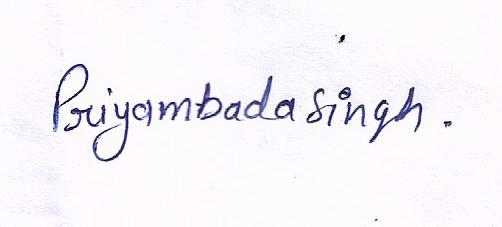 Priyambada Singh.